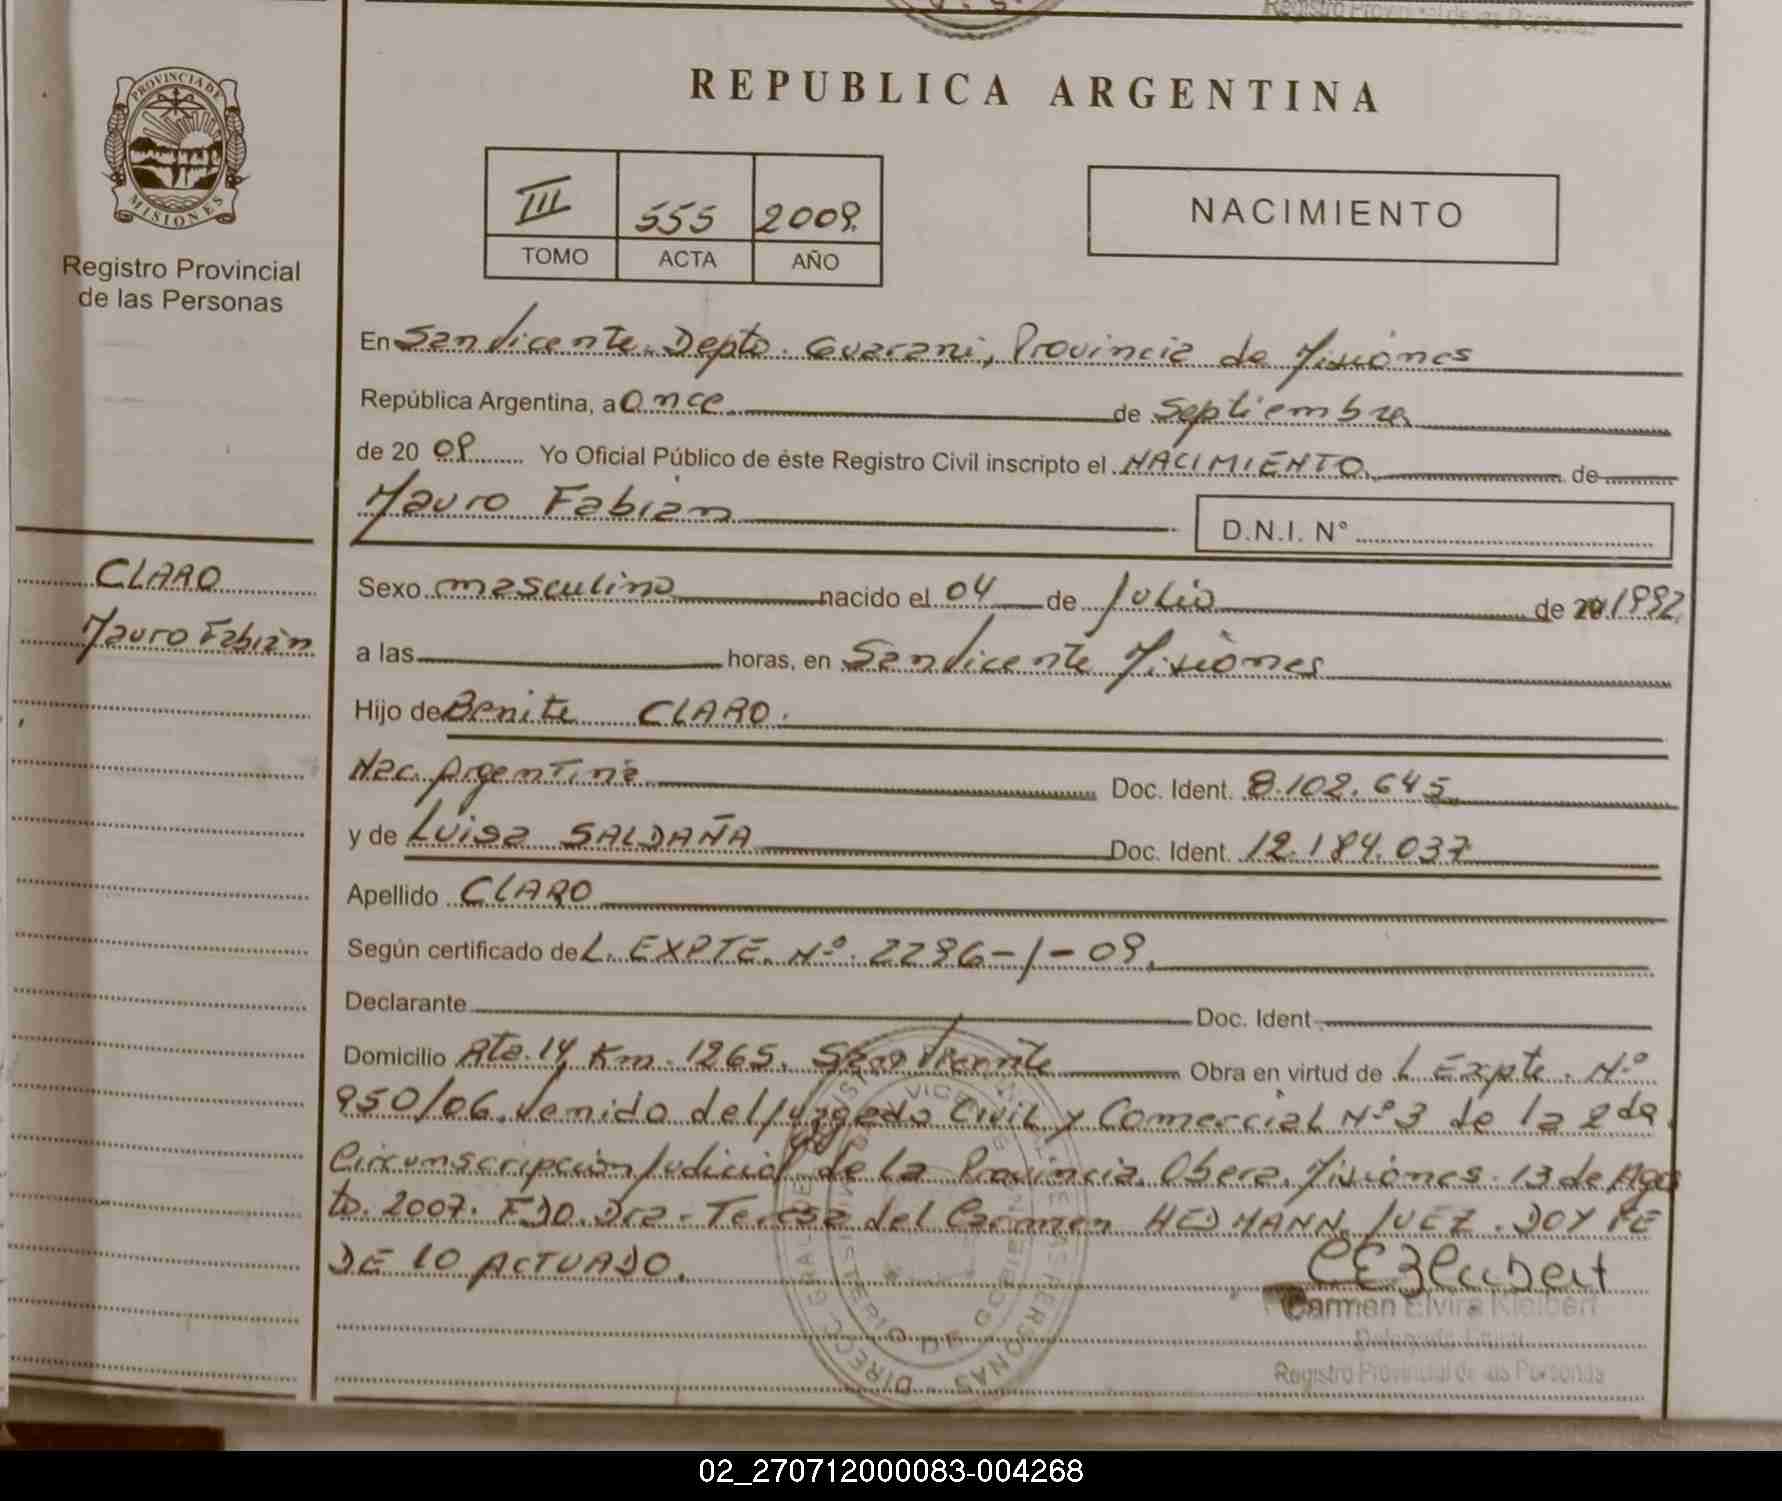 Registro Provincial de las Personas
PROVINCIA DE
MISIONES
Registro Provincial
de las Personas
CLARO
Mauro Fabián
REPUBLICA ARGENTINA
III 555 2009.
TOMO ACTA AÑO
NACIMIENTO
En San Vicente. Depto. Guarani, Provincia de Misiones
República Argentina, a once de Septiembre
de 20 09 Yo Oficial Público de éste Registro Civil inscripto el NACIMIENTO de
Mauro Fabián
D.N.I. N°
Sexo masculino nacido el 04 de Julio de 20 1992
a las horas, en San Vicente Misiones
Hijo de Benite CLARO.
Nac. Argentina Doc. Ident. 8.102.645
y de Luisa SALDAÑA Doc. Ident. 12.184.037
Apellido CLARO
Según certificado de L. EXPTE. Nº. 2296-1-09.
Declarante Doc. Ident
Domicilio Rta. 14 Km. 1265. San Vicente Obra en virtud de L Expte. Nº
950/06. Venido del Juzgado Civil y Comercial Nº 3 de la 2da
Circunscripción Judicial de la Provincia. Obera. Misiones. 13 de Agos
to. 2007. FDO. Dra. Teresa del Carmen HEDMANN. JUEZ. DOY FE
DE LO ACTUADO.
Carmen Elvira Kleibert
Registro Provincial de las Personas
02_270712000083-004268